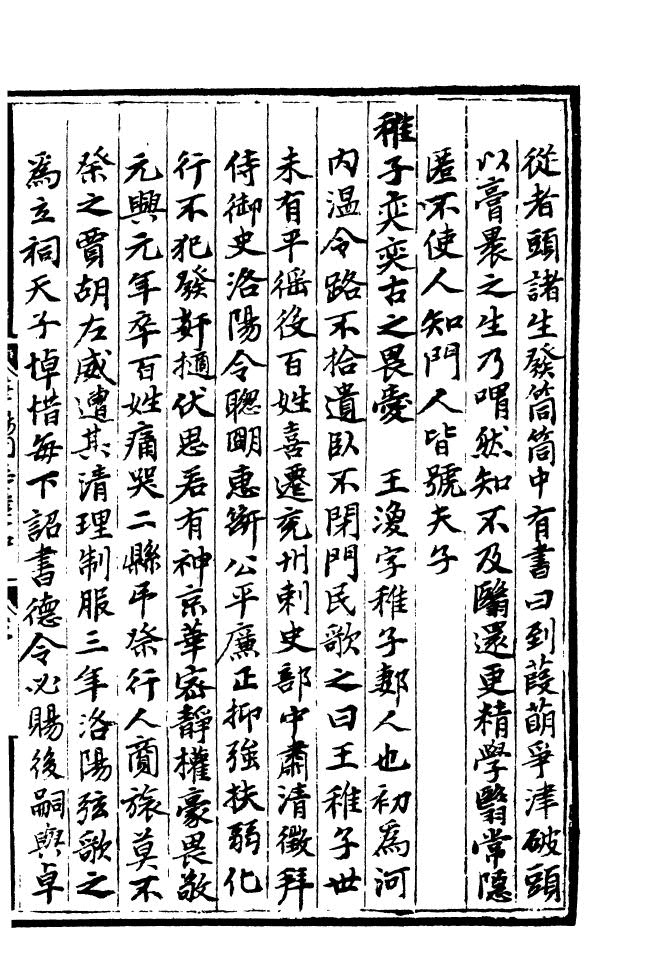 從者頭諸生發筒筒中有書曰到葭萌爭津破頭
以膏裹之生乃喟然知不及翳還更精學翳常隱
匿不使人知門人皆號夫子
稚子奕奕古之畏愛　王渙字稚子郪人也初為河
內溫令路不拾遺臥不閉門民歌之曰王稚子世
未有平徭役百姓喜遷兖州刺史部中肅清徵拜
侍御史洛陽令聰明惠斷公平廉正抑強扶弱化
行不犯發姧擿伏思若有神京華密靜權豪畏敬
元興元年卒百姓痛哭二縣弔祭行人商旅莫不
祭之賈胡左威遭其清理制服三年洛陽弦歌之
為立祠天子悼惜每下詔書德令必賜後嗣與卓